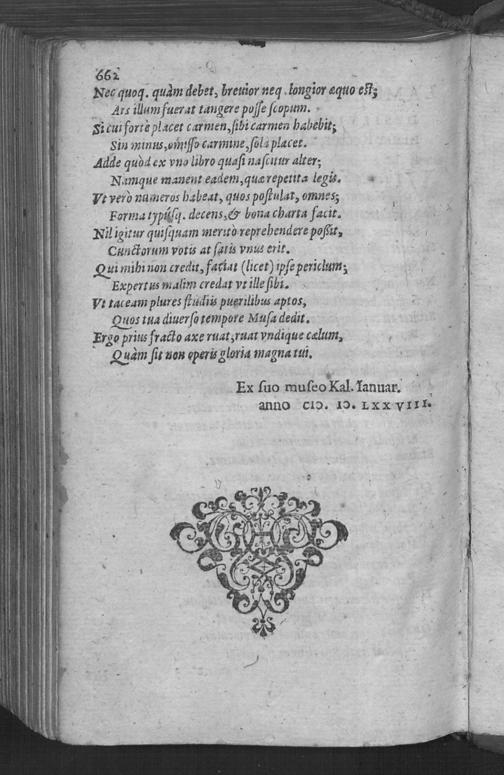 662
Nec quoq. quàm debet, breuior neq. longior æquo est;
Ars illum fuerat tangere posse scopum.
Si cui fortè placet carmen, sibi carmen habebit;
Sin minus, omisso carmine, sola placet.
Adde quòd ex vno libro quasi nascitur alter;
Namque manent eadem, quæ repetita legis.
Vt verò numeros habeat, quos postulat, omnes;
Forma typúsq. decens, & bona charta facit.
Nil igitur quisquam meritò reprehendere poßit,
Cunctorum votis at satis vnus erit.
Qui mihi non credit, faciat (licet) ipse periclum;
Expertus malim credat vt ille sibi.
Vt taceam plures studiis puerilibus aptos,
Quos tua diuerso tempore Musa dedit.
Ergo prius fracto axe ruat, ruat vndique cælum,
Quàm sit non operis gloria magna tui.
Ex suo museo Kal. Ianuar.
anno CIↃ. IↃ. LXXVIII.